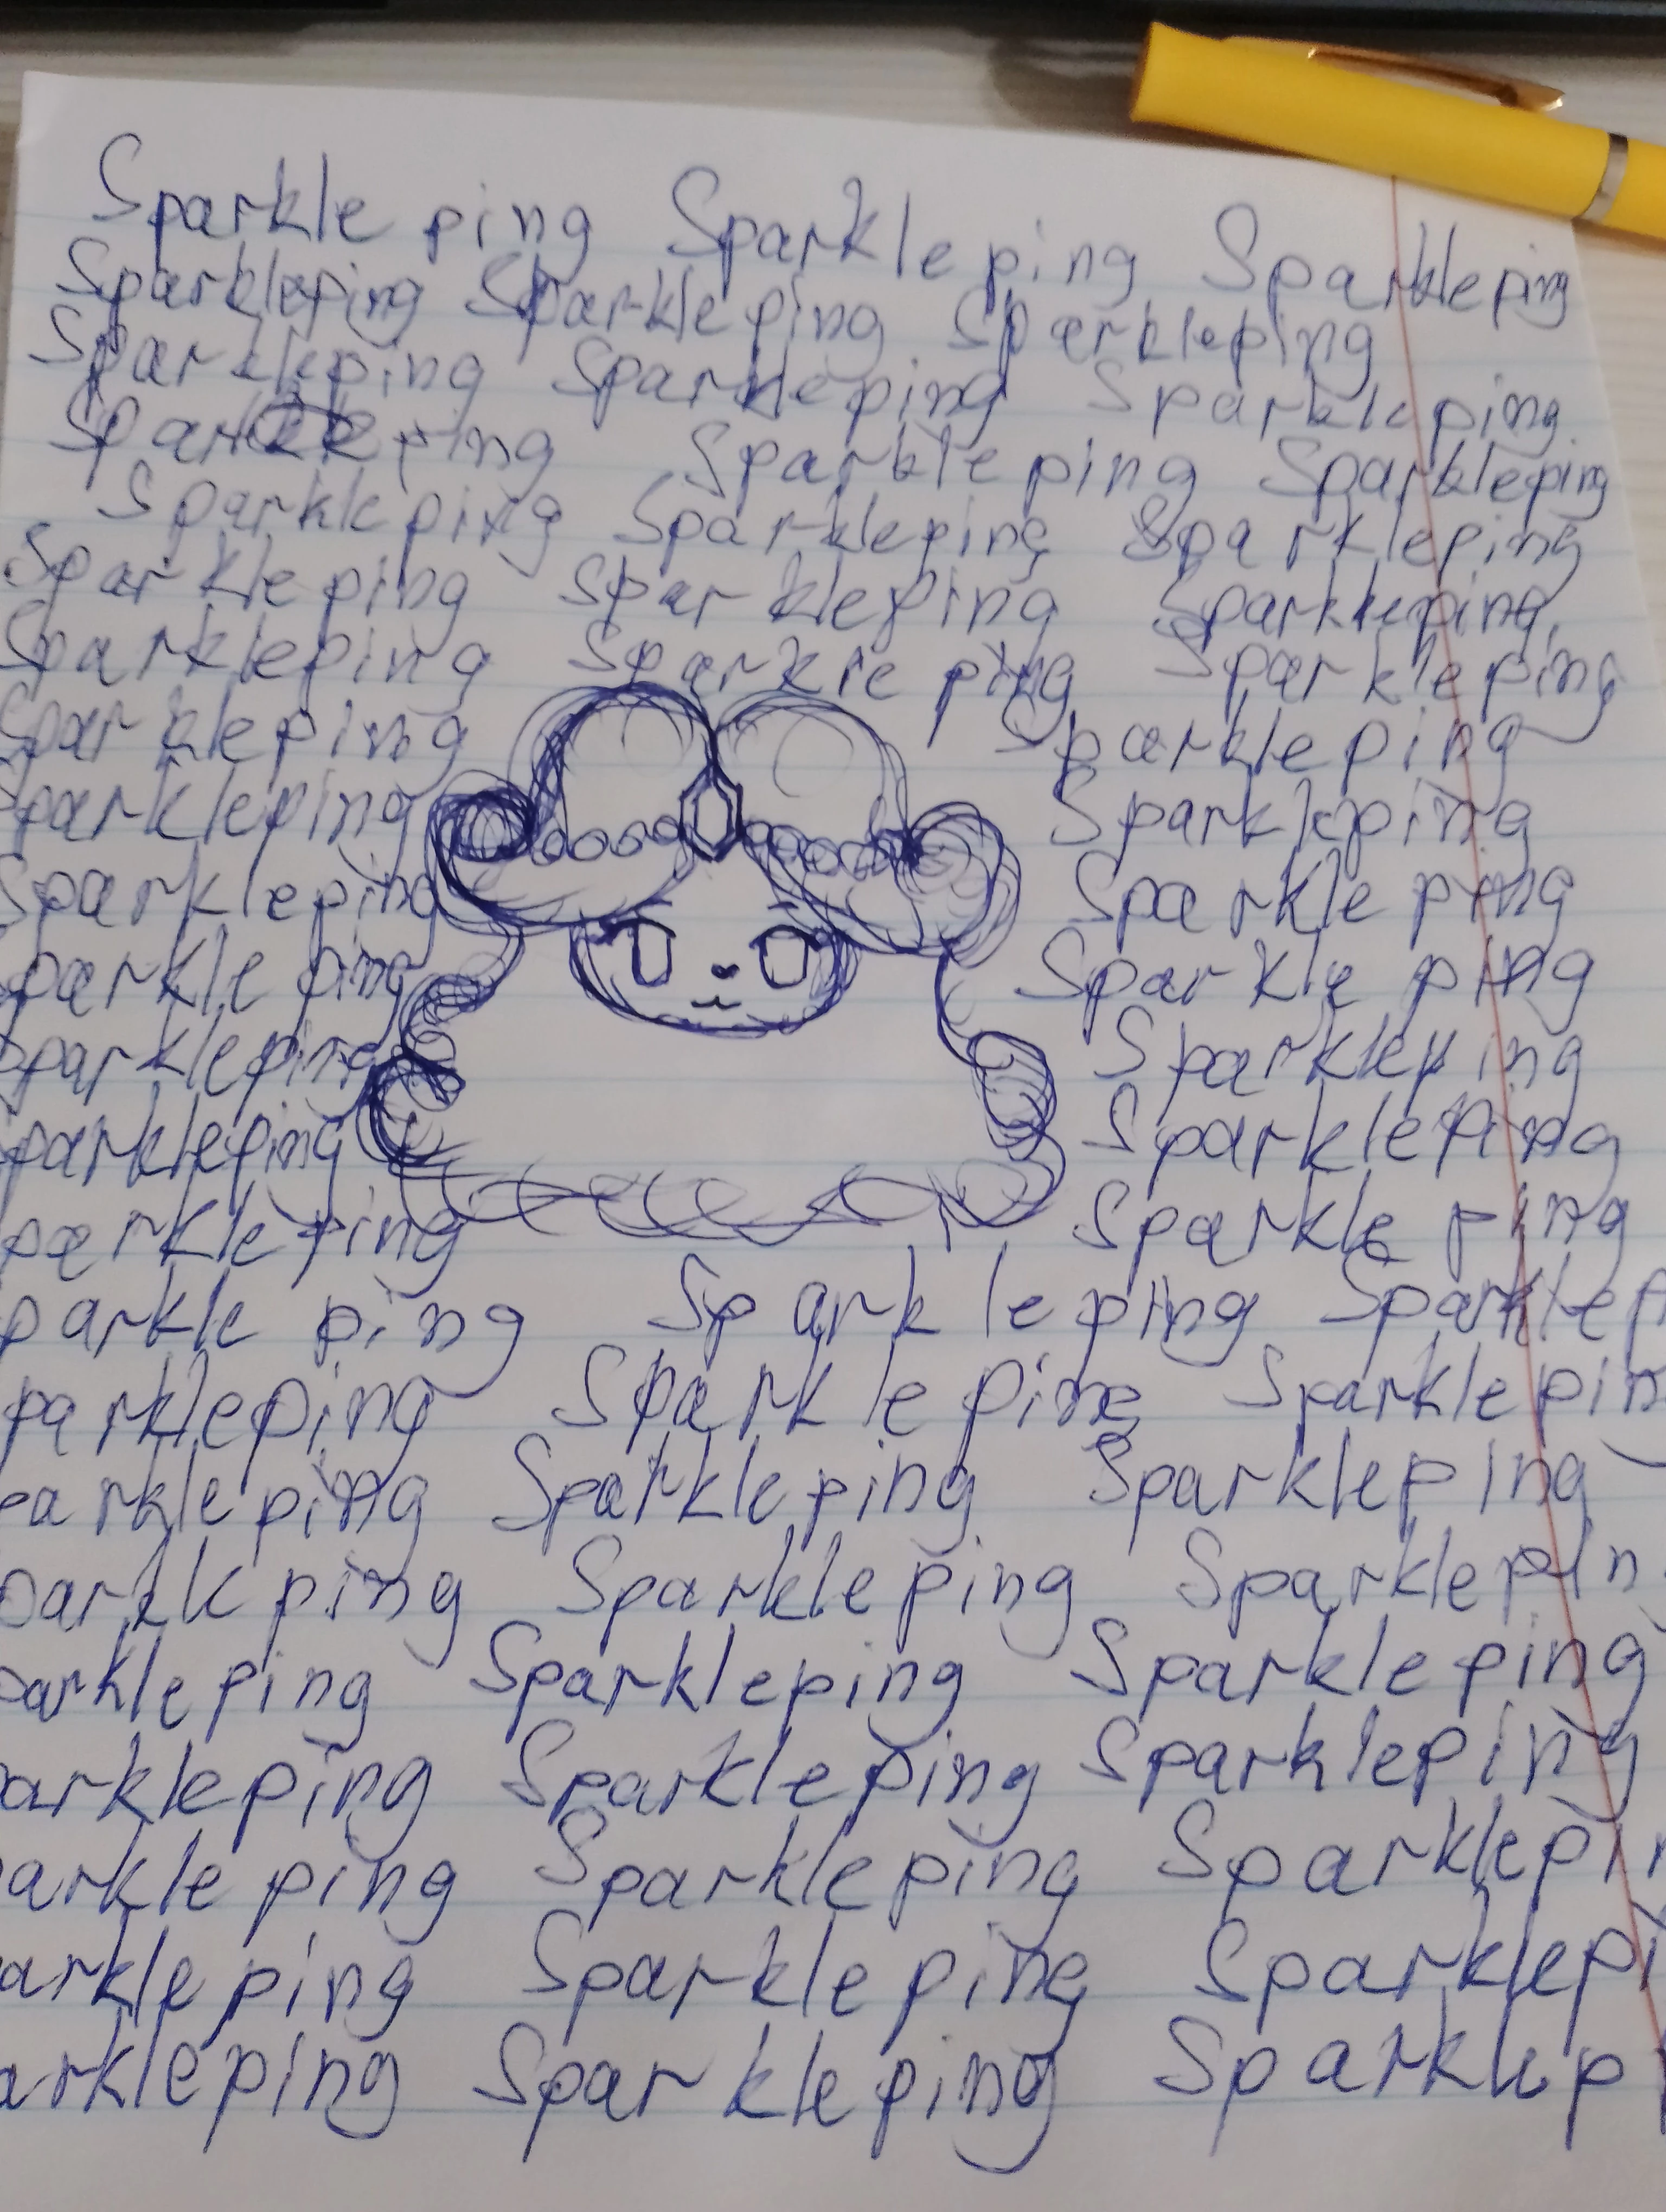 Sparkle ping Sparkleping Sparkleping
Sparkleping Sparkleping Sparkleping
Sparkleping Sparkleping Sparkleping
Sparkleping Sparkleping Sparkleping
Sparkleping Sparkleping Sparkleping
Sparkleping Sparkleping Sparkleping
Sparkleping Sparkle ping Sparkleping
Sparkleping Sparkleping
Sparkleping Sparkleping
Sparkleping Sparkle ping
parkle ping Sparkle ping
Sparkleping Sparkleping
parkleping Sparkleping
parkleping Sparkle ping
parkle ping Sparkleping Sparklep
parkleping Sparkle ping Sparklepin
parkleping Sparkleping Sparkleping
parkle ping Sparkleping Sparklepin
parkleping Sparkleping Sparkleping
arkleping Sparkleping Sparkleping
arkle ping Sparkleping Sparklepin
arkle ping Sparkle ping Sparklepi
arkleping Sparkleping Sparklep